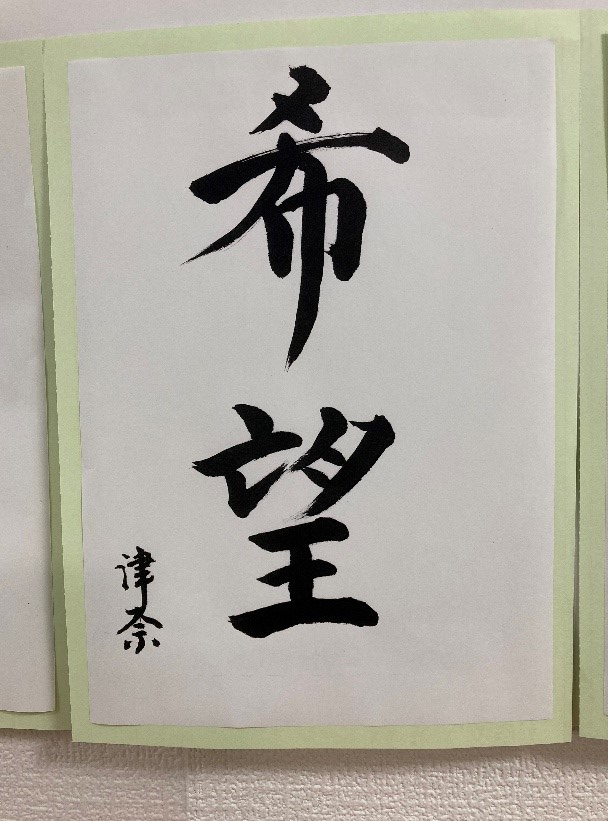 希望
津奈